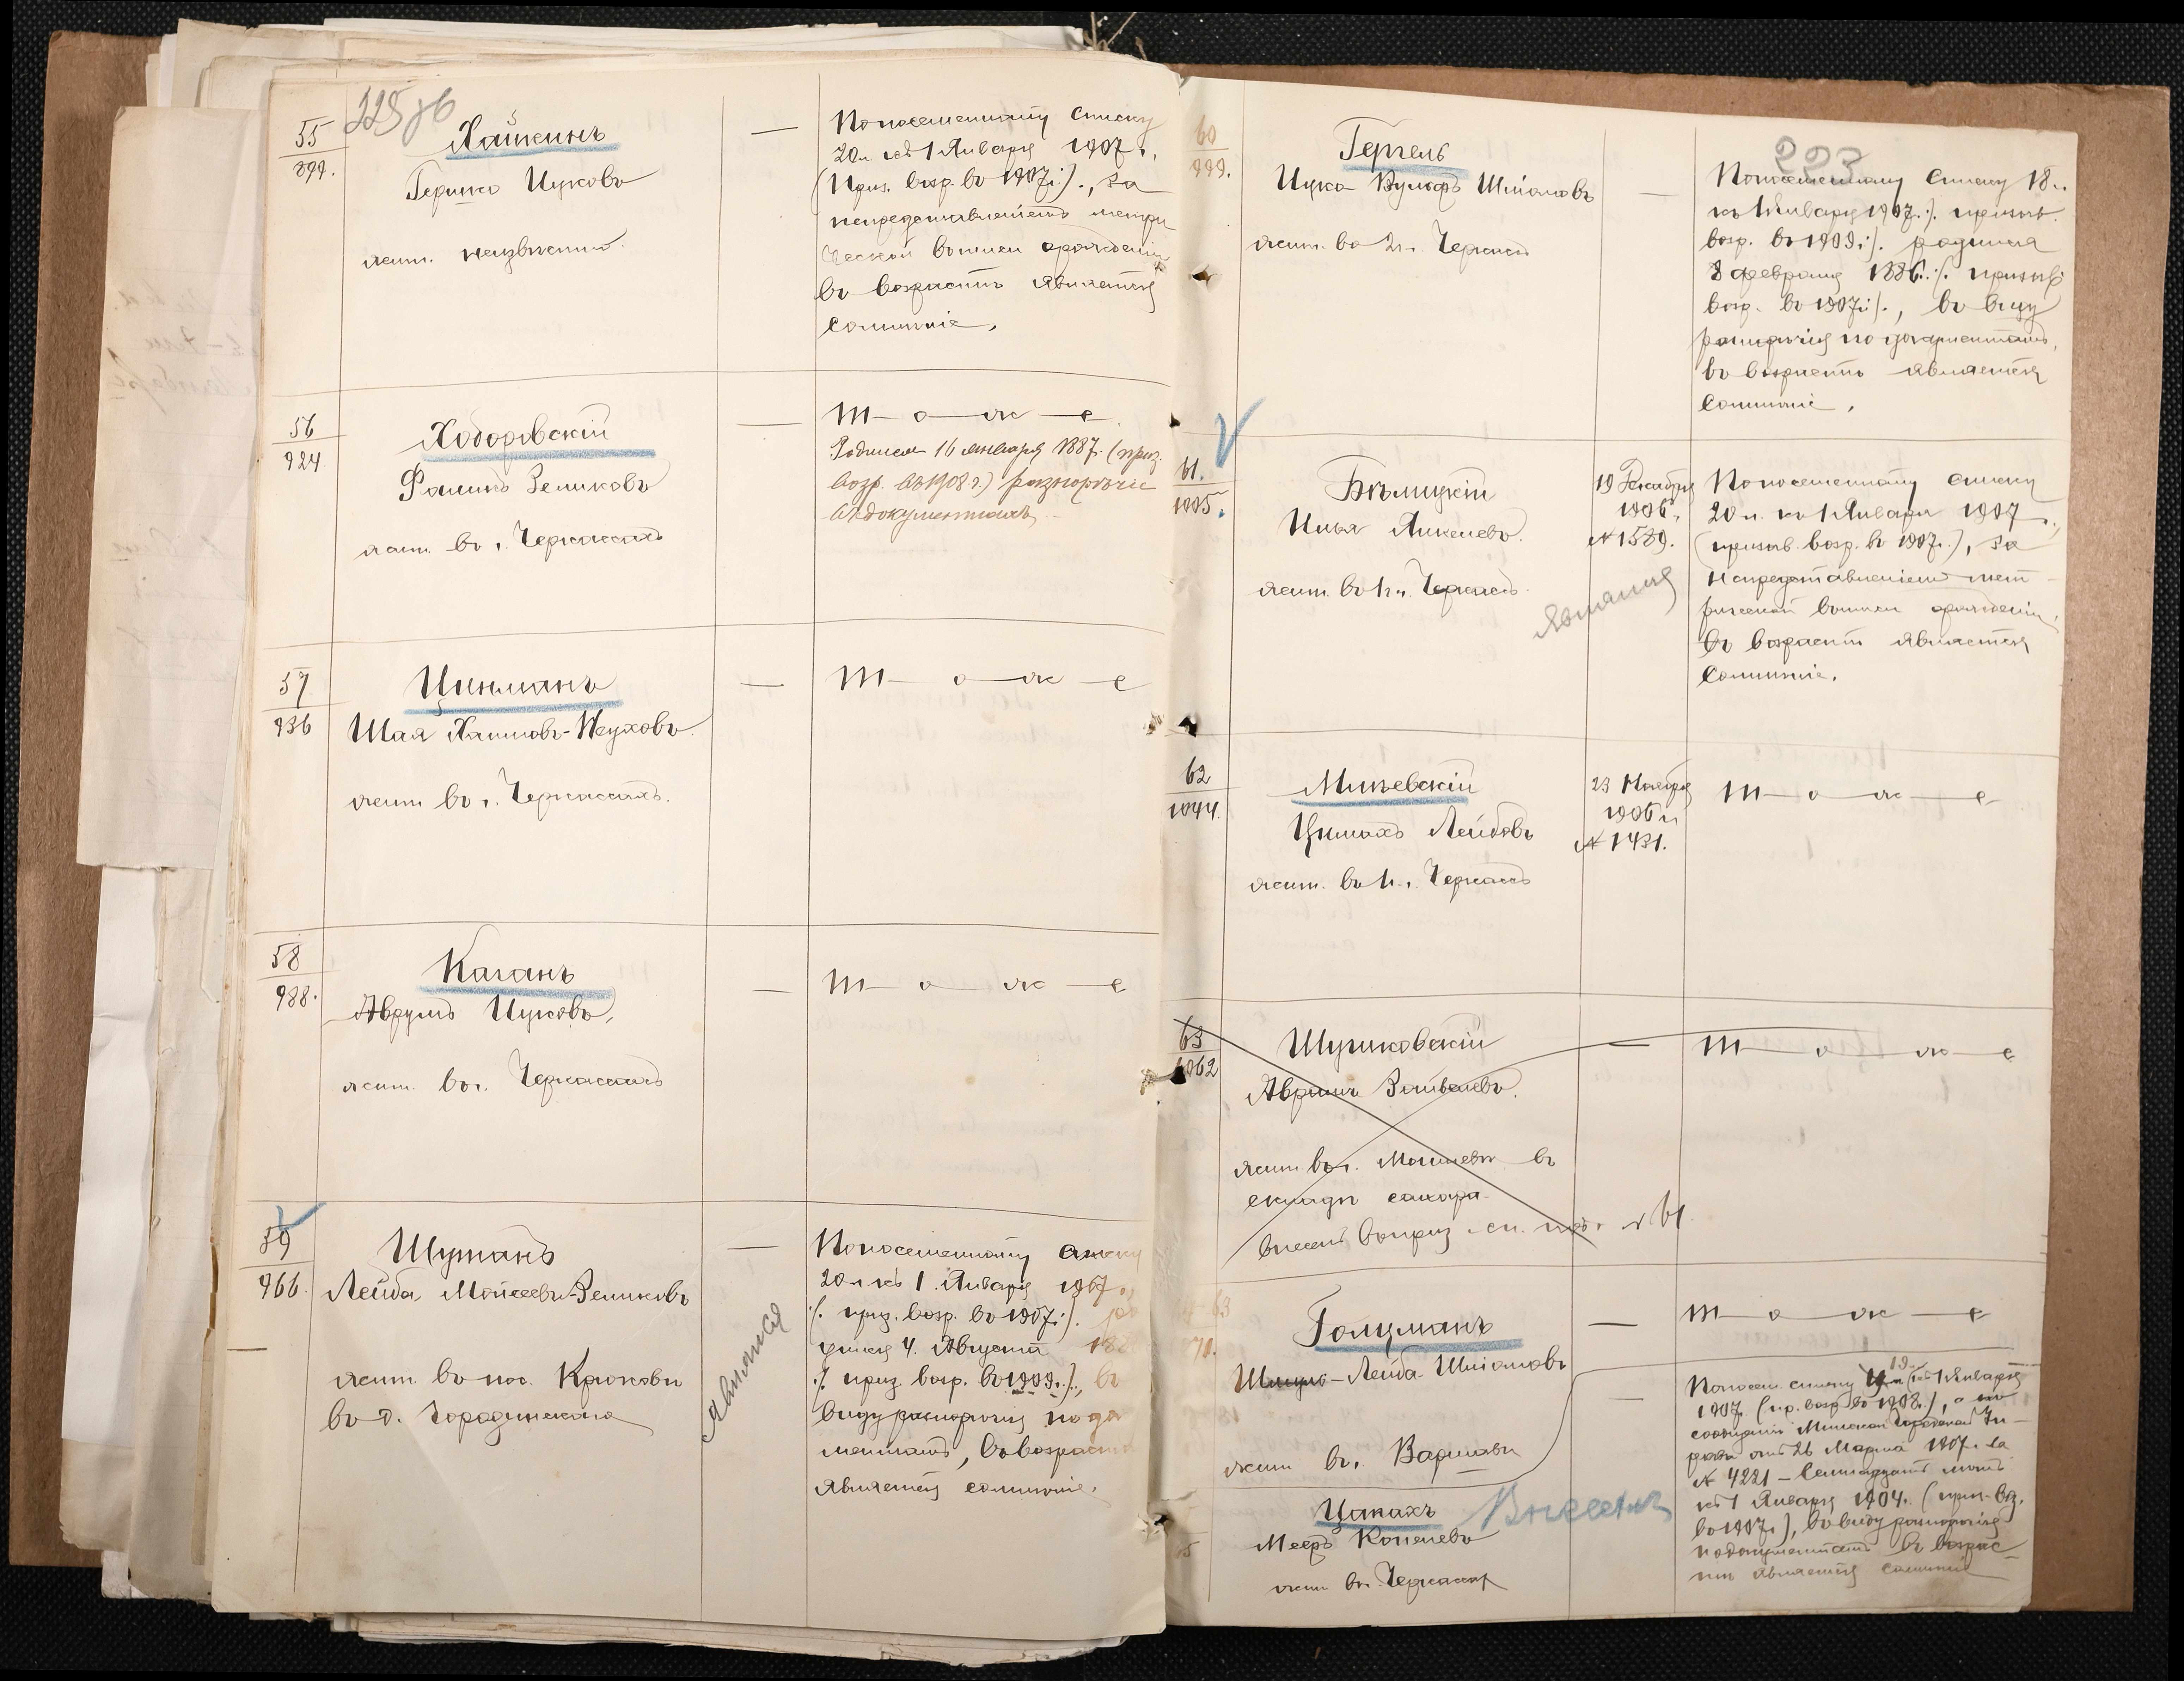 225 об
55
899.
Хайкинъ
Гершко Ицковъ
жит. неизвестно.
—
По посемейному списку
20 л. къ 1 Января 1907 г.
(приз. возр. въ 1907 г.), за
непредставленіемъ метри
ческой выписи о рожденіи
въ возрастѣ является
сомнѣніе.
56
924
Ходоровскій
Фаликъ Зеликовъ
жит. въ г. Черкассахъ
—
т — о — ж — е
Родился 16 января 1887 г. (приз.
возр. въ 1908 г.) разнорѣчіе
въ документахъ
57
936
Цинманъ
Шая Хаимовъ-Нухновъ
жит. въ г. Черкассахъ.
—
т — о — ж — е
58
988.
Каганъ
Аврумъ Ицковъ,
жит. въ г. Черкассахъ
—
т — о — ж — е
59
966.
Шуманъ
Лейба Мойсеевъ-Зеликовъ
жит. въ пос. Крюковѣ
въ д. Городинскаго
—
Явился
По посемейному списку
20 л. къ 1 Января 1907 г.
(приз. возр. въ 1907 г.). ро
дился 4 Августа 188
(приз. возр. въ 1909 г.), въ
виду разнорѣчія по до
ментамъ, въ возрастѣ
является сомнѣніе.
223
60
999.
Гергель
Ицко Вульфъ Шліомовъ
жит. въ г. Черкас.
—
По посемейному списку 18 л.
къ 1 Января 1907 г. (призыв.
возр. въ 1909 г.). родился
8 февраля 1886 г. (призыв.
возр. въ 1907 г.), въ виду
разнорѣчія по документамъ,
въ возрастѣ является
сомнѣніе.
61.
1005.
Бѣлицкій
Илья Янкелевъ.
жит. въ г. Черкас.
19 Декабря
1906 г.
№ 1589.
Явился
По посемейному списку
20 л. къ 1 Января 1907 г.
(призыв. возр. въ 1907 г.), за
непредставленіемъ мет
рической выписи о рожденіи,
въ возрастѣ является
сомнѣніе.
62
1044.
Милевскій
Цимахъ Лейбовъ
жит. въ г. Черкас.
23 Ноября
1906 г.
№ 1431.
т — о — ж — е
63
1062
Шушковскій
Аврумъ Зейвелевъ.
жит. въ г. Могилевѣ въ
складѣ сахара
внесенъ въ приз. сп. под. № 61.
—
т — о — ж — е
63
71.
Голцманъ
Шмуль-Лейба Шліомовъ
жит. въ г. Варшавѣ
—
т — о — ж — е
65
Цамахъ
Внесенъ
Мееръ Копелевъ
жит. въ г. Черкассах
—
По посем. списку 19 л. (къ 1 Января
1907 г. (пр. возр. въ 1908 г.), а по
сообщенію Минской Городской Уп-
равы отъ 26 Марта 1907 г. за
№ 4221 — семнадцать лѣтъ
къ 1 Января 1904 г. (приз. воз.
въ 1907 г.), въ виду разнорѣчія
по документамъ въ возрас-
тѣ является сомнѣніе